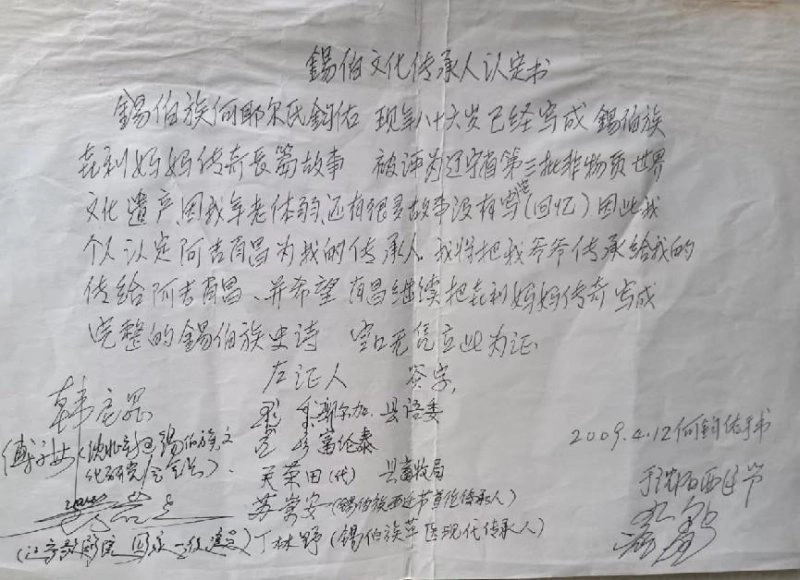 錫伯文化传承人认定书
錫伯族何耶尔氏鈞佑 现年八十六岁已经写成 錫伯族
喜利妈妈传奇长篇故事 被评为辽宁省第三批非物质世界
文化遗产、因我年老体弱、还有很多故事没有写(回忆)因此我
个人认定阿吉肖昌为我的传承人、我将把我爷爷传承给我的
传给阿吉肖昌、并希望肖昌继续把喜利妈妈传奇写成
完整的錫伯族史诗 空口无凭立此为证
左证人 签字
斯尔加 县语委
2009.4.12何鈞佑手书
富伦泰
(沈北新区錫伯族文
化研究会会长)
关荣田(代) 县畜牧局
于沈阳西迁节
苏崇安(锡伯族西迁节首任传承人)
丁林野(錫伯族 医现代传承人)